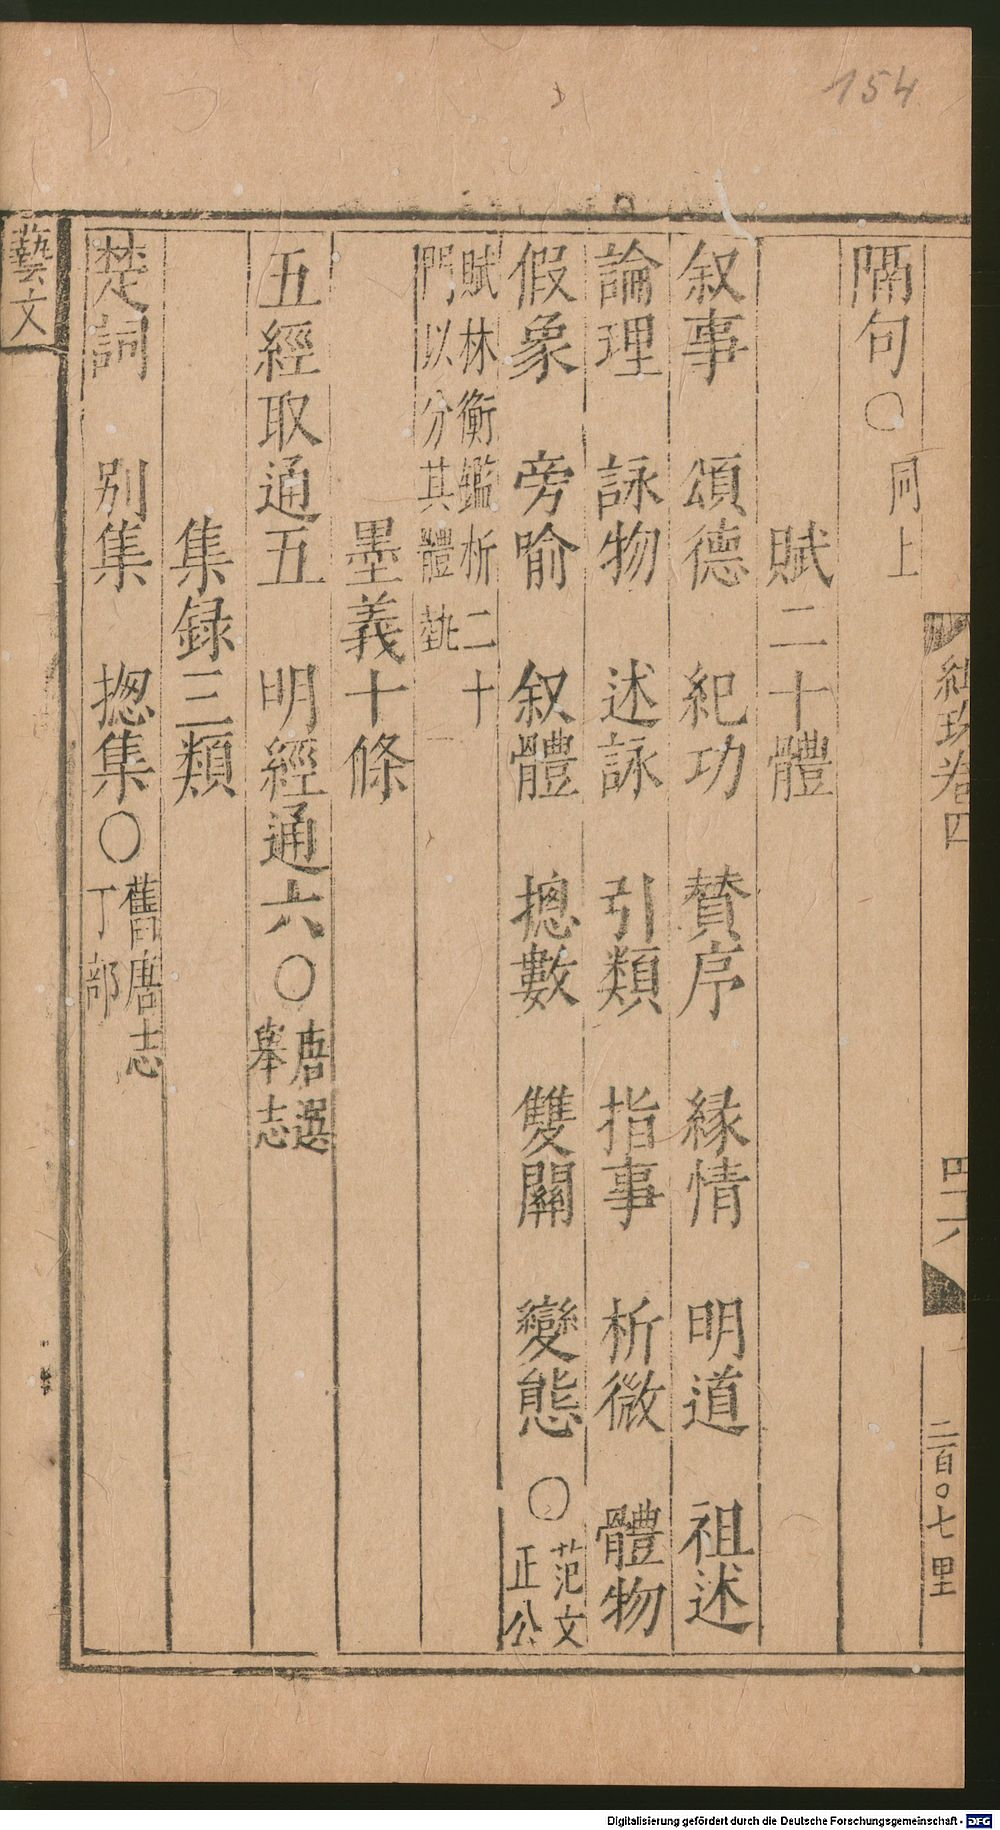 154
紺珠卷四
四十六
二百〇七 里
隔句〇同上
賦二十體
叙事 頌德 紀功 賛序 緣情 明道 祖述
論理 詠物 述詠 引類 指事 析微 體物
假象 旁喻 叙體 摠數 雙關 變態 〇范文正公
賦林衡鑑析二十
門以分其體埶
墨義十條
五經取通五 明經通六〇唐選舉志
集録三類
楚詞 別集 摠集〇舊唐志丁部
藝文
Digitalisierung gefördert durch die Deutsche Forschungsgemeinschaft - DFG